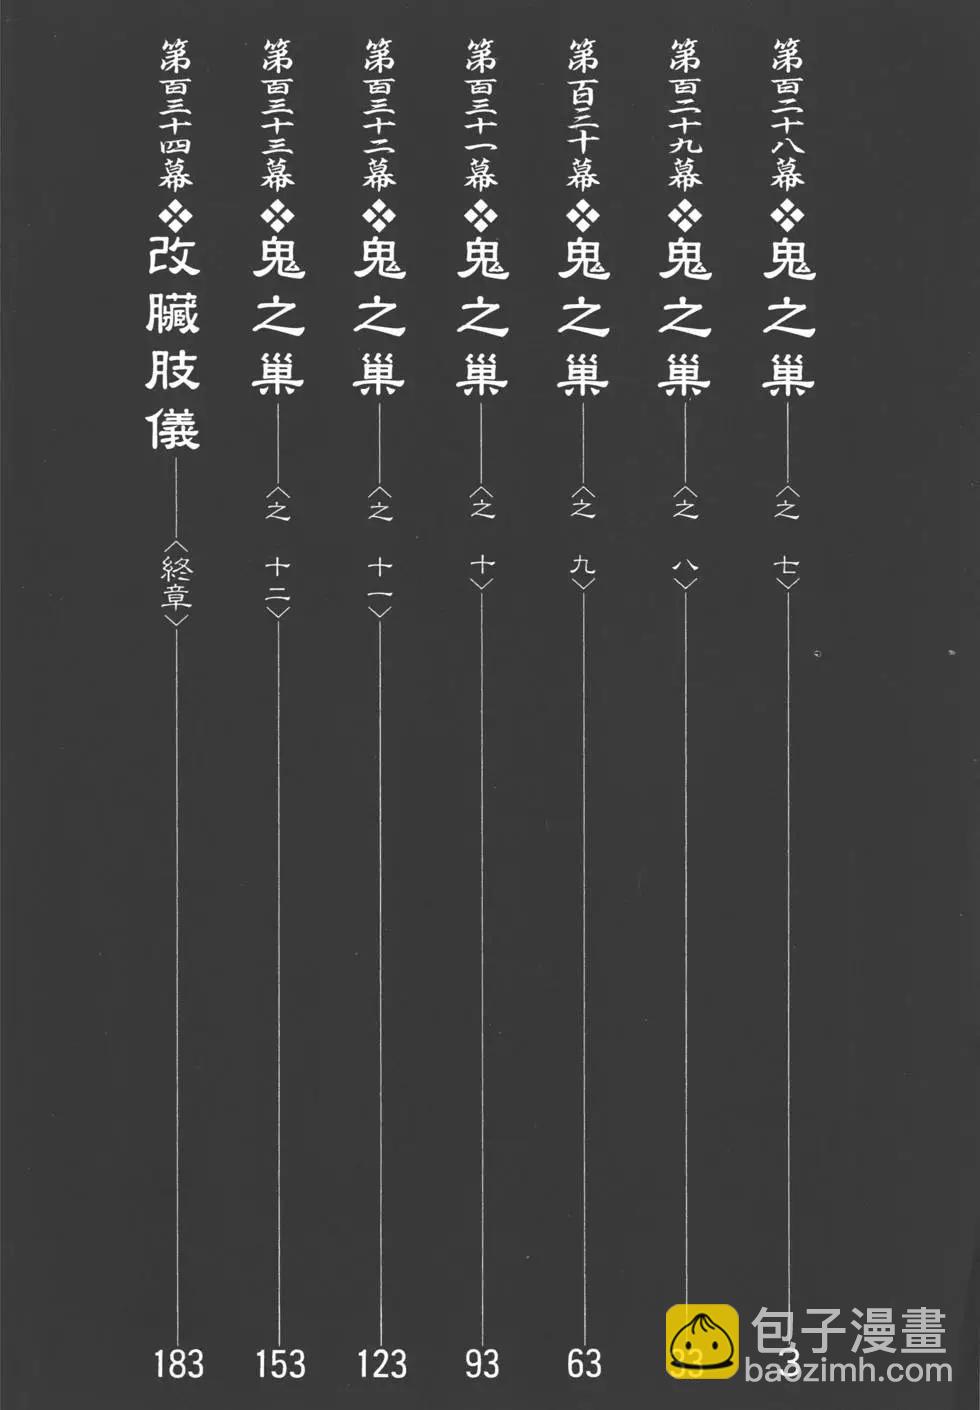 第百二十八幕❖鬼之巢〈之 七〉3
第百二十九幕❖鬼之巢〈之 八〉33
第百三十幕❖鬼之巢〈之 九〉63
第百三十一幕❖鬼之巢〈之 十〉93
第百三十二幕❖鬼之巢〈之 十一〉123
第百三十三幕❖鬼之巢〈之 十二〉153
第百三十四幕❖改臟肢儀〈終章〉183
包子漫畫
baozimh.com